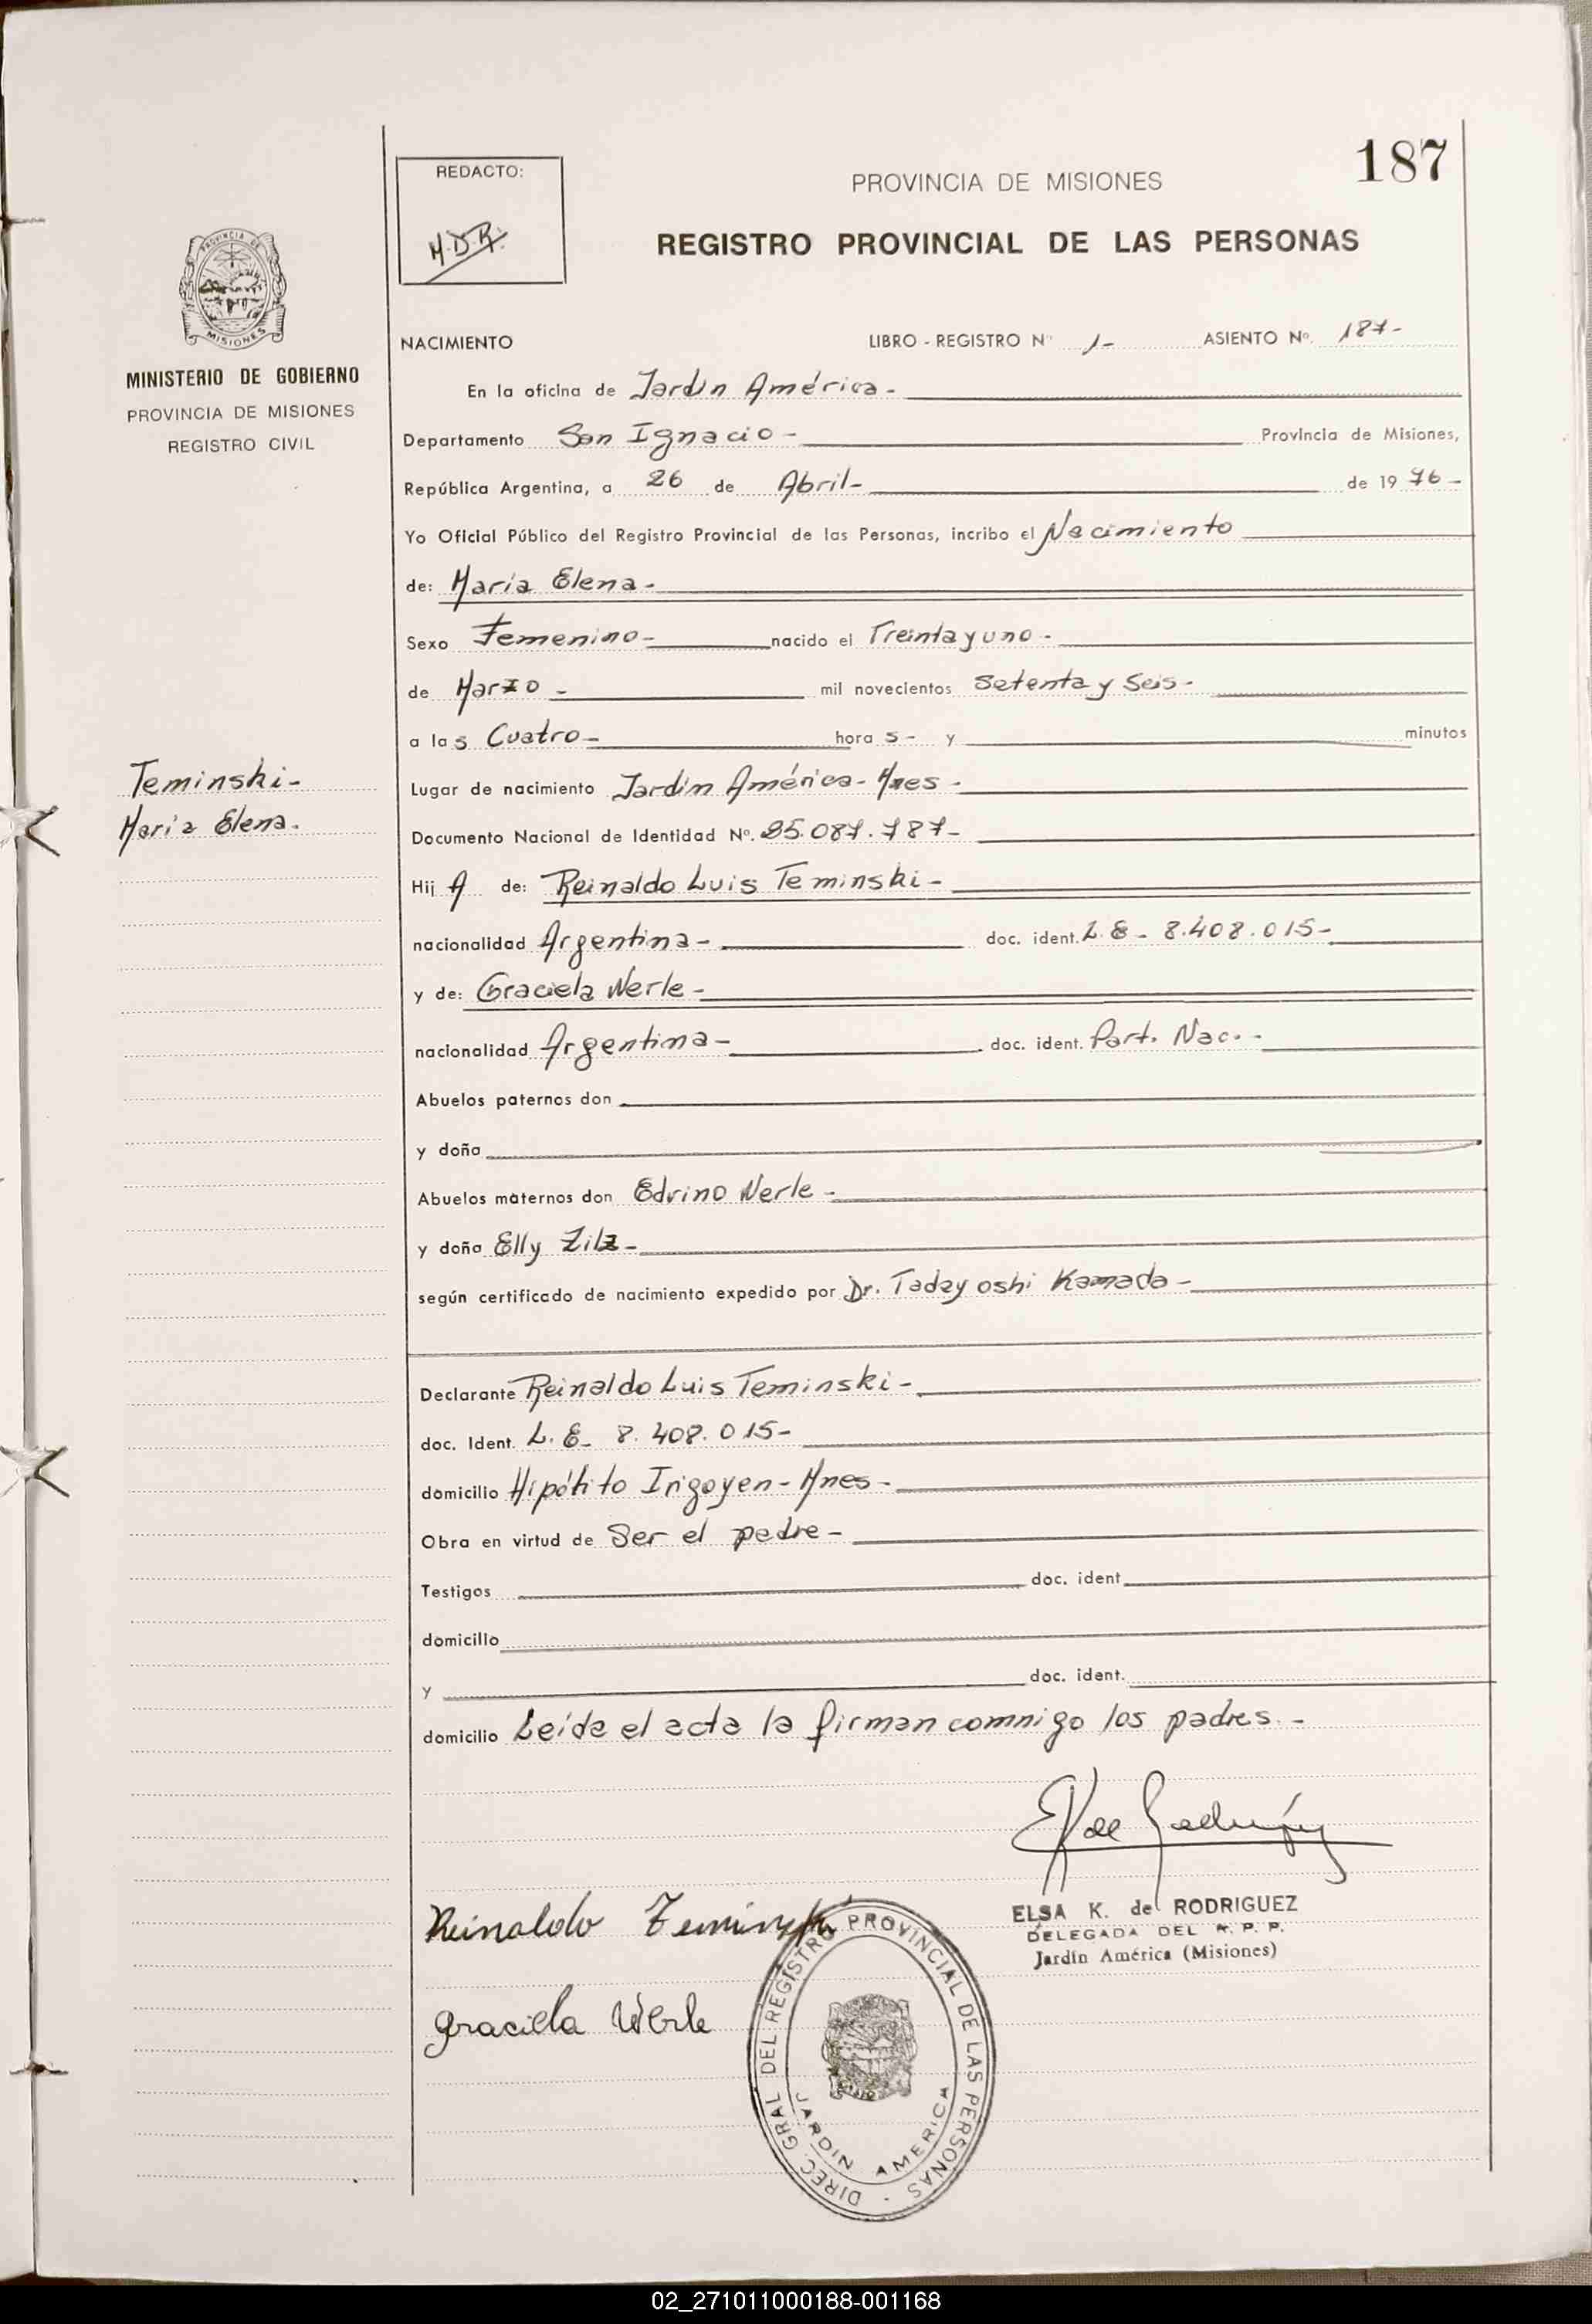 187
REDACTO:
M.D.R.
PROVINCIA DE MISIONES
REGISTRO PROVINCIAL DE LAS PERSONAS
PROVINCIA DE
MISIONES
MINISTERIO DE GOBIERNO
PROVINCIA DE MISIONES
REGISTRO CIVIL
NACIMIENTO LIBRO - REGISTRO Nº 1- ASIENTO Nº. 187-
En la oficina de Jardín América-
Departamento San Ignacio- Provincia de Misiones,
República Argentina, a 26 de Abril- de 19 76-
Yo Oficial Público del Registro Provincial de las Personas, incribo el Nacimiento
de: María Elena-
Sexo Femenino- nacido el Treinta y uno-
de Marzo- mil novecientos Setenta y Seis-
a las Cuatro- hora s- y minutos
Teminski-
María Elena.
Lugar de nacimiento Jardín América-Mnes-
Documento Nacional de Identidad Nº. 25.087.787-
Hij A de: Reinaldo Luis Teminski-
nacionalidad Argentina- doc. ident. L.E- 8.408.015-
y de: Graciela Werle-
nacionalidad Argentina- doc. ident. Part. Nac.-
Abuelos paternos don
y doña
Abuelos maternos don Edvino Werle-
y doña Elly Zilz-
según certificado de nacimiento expedido por Dr. Tadayoshi Kamada-
Declarante Reinaldo Luis Teminski-
doc. Ident. L.E- 8.408.015-
domicilio Hipólito Irigoyen-Mnes-
Obra en virtud de Ser el padre-
Testigos doc. ident
domicilio
y doc. ident.
domicilio Leída el acta la firman comnigo los padres.-
ELSA K. de RODRIGUEZ
DELEGADA DEL R. P. P.
Jardín América (Misiones)
Reinaldo Teminski
Graciela Werle
DIREC. GRAL DEL REGISTRO PROVINCIAL DE LAS PERSONAS -
JARDIN AMERICA
02_271011000188-001168